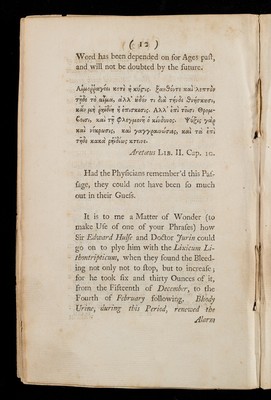 ( 12 )
Word has been depended on for Ages past,
and will not be doubted by the future.
Αἱμοῤῥαγέει κοτὲ ἡ κύςις. ξανθόντε καὶ λεπτὸν
τῆδε τὸ αἷμα, ἀλλ' οὐδέν τι διὰ τῆνδε θνήσκουσι,
κἂν μὴ ῥηϊδίη ἡ ἐπίσχεσις. Ἀλλ' ἐπὶ τοῖσι Θρομ-
Cοισι, καὶ τῇ Φλεγμονῇ ὁ κίνδυνος. Ψῦξις γὰρ
καὶ νέκρωσις, καὶ γαγγραινώσιες, καὶ τὰ ἐπὶ
τῇδε κακὰ ῥηϊδίως κτείνει.
Aretæus Lib. II. Cap. 10.
Had the Physicians remember'd this Pas-
sage, they could not have been so much
out in their Guess.
It is to me a Matter of Wonder (to
make Use of one of your Phrases) how
Sir Edward Hulse and Doctor Jurin could
go on to plye him with the Lixivium Li-
thontripticum, when they found the Bleed-
ing not only not to stop, but to increase;
for he took six and thirty Ounces of it,
from the Fifteenth of December, to the
Fourth of February following. Bloody
Urine, during this Period, renewed the
Alarm